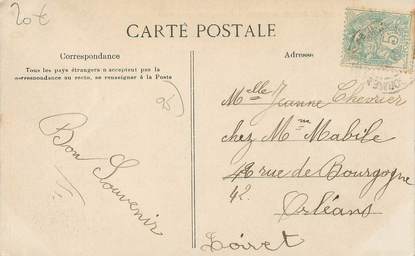 20€
CARTE POSTALE
Correspondance
Tous les pays étrangers n'acceptent pas la
correspondance au recto, se renseigner à la Poste
Adresse
95
Bon Souvenir
Melle Jeanne Chevrier
chez Mme Mabile
42 rue de Bourgogne
42.
Orléans
Loiret